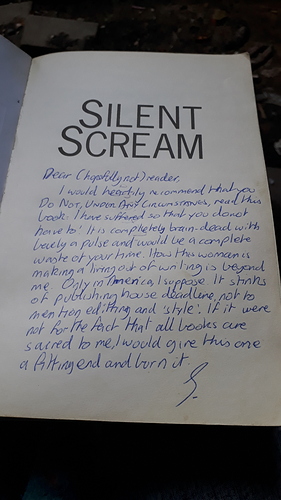 SILENT
SCREAM
Dear (hopefully not) reader,
I would heartily recommend that you
Do Not, Under Any Circumstances, read this
book. I have suffered so that you do not
have to! It is completely brain-dead with
barely a pulse and would be a complete
waste of your time. How this woman is
making a living out of writing is beyond
me. Only in America, I suppose. It stinks
of publishing house deadline not to
mention editting and 'style'. If it were
not for the fact that all books are
sacred to me, I would give this one
a fitting end and burn it.